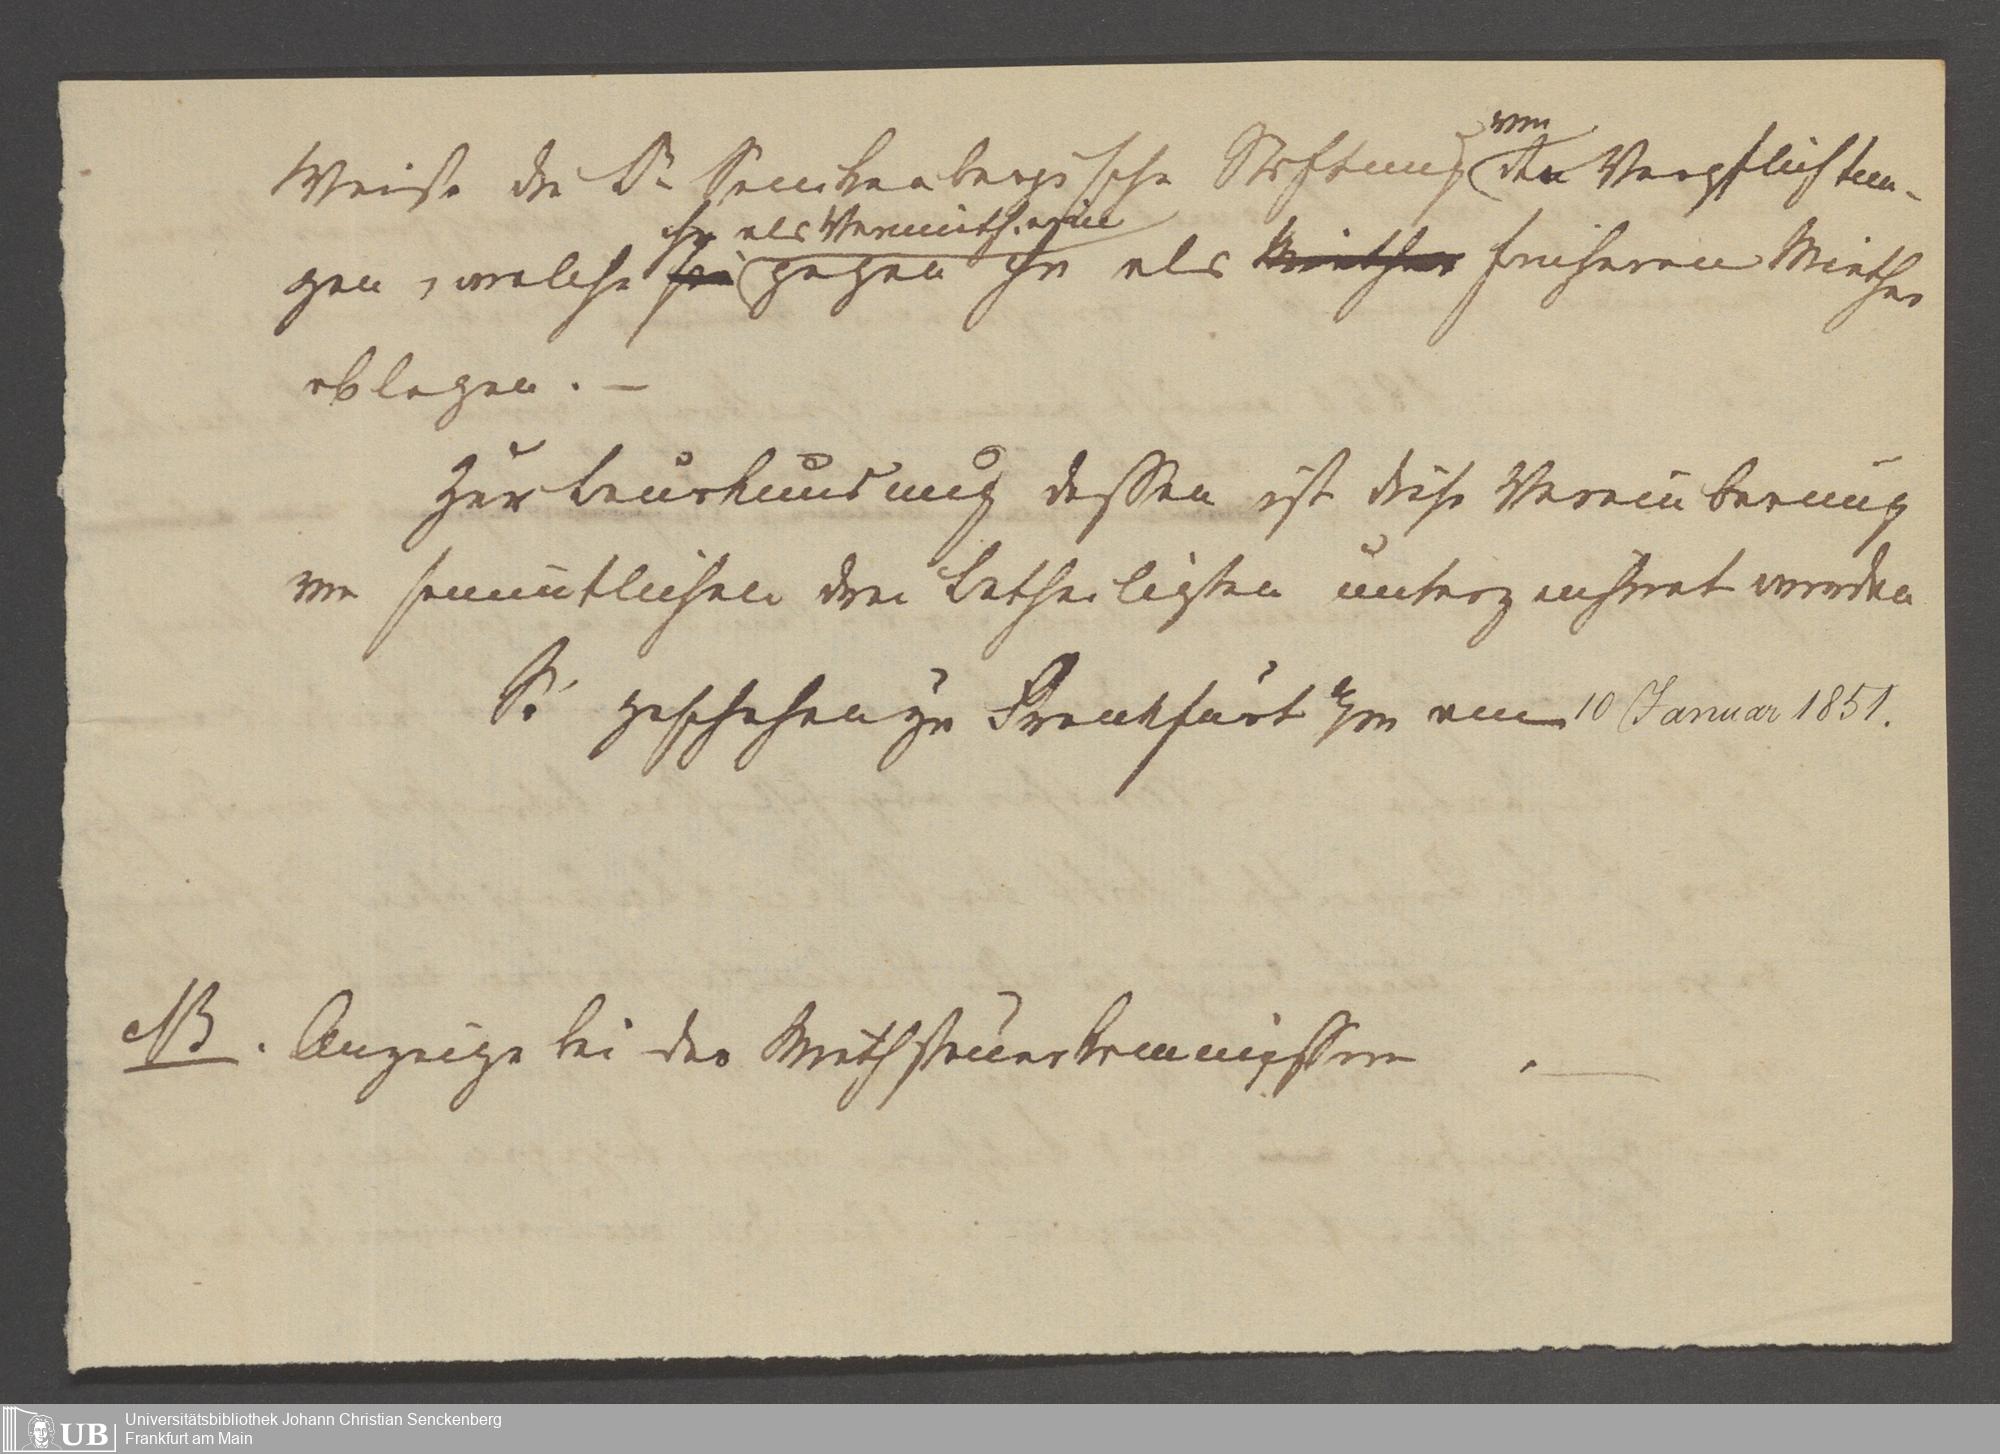 Weise die Dr. Senckenbergische Stiftung von den Verpflichtun-
gen, welche sie ihr als Vermietherin gegen ihn als Miether früheren Miether
oblagen. —
Zur Beurkundung dessen ist diese Vereinbarung
von sämmtlichen drei Betheiligten unterzeichnet worden
So geschehen zu Frankfurt a/m am 10 Januar 1851.
NB. Anzeige bei der Miethsteuerkommission . —
Universitätsbibliothek Johann Christian Senckenberg
Frankfurt am Main
UB